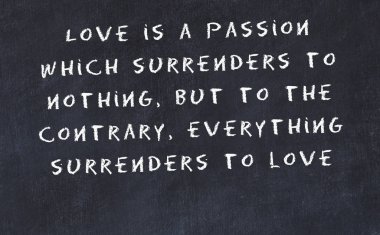 LOVE IS A PASSION
WHICH SURRENDERS TO
NOTHING, BUT TO THE
CONTRARY, EVERYTHING
SURRENDERS TO LOVE